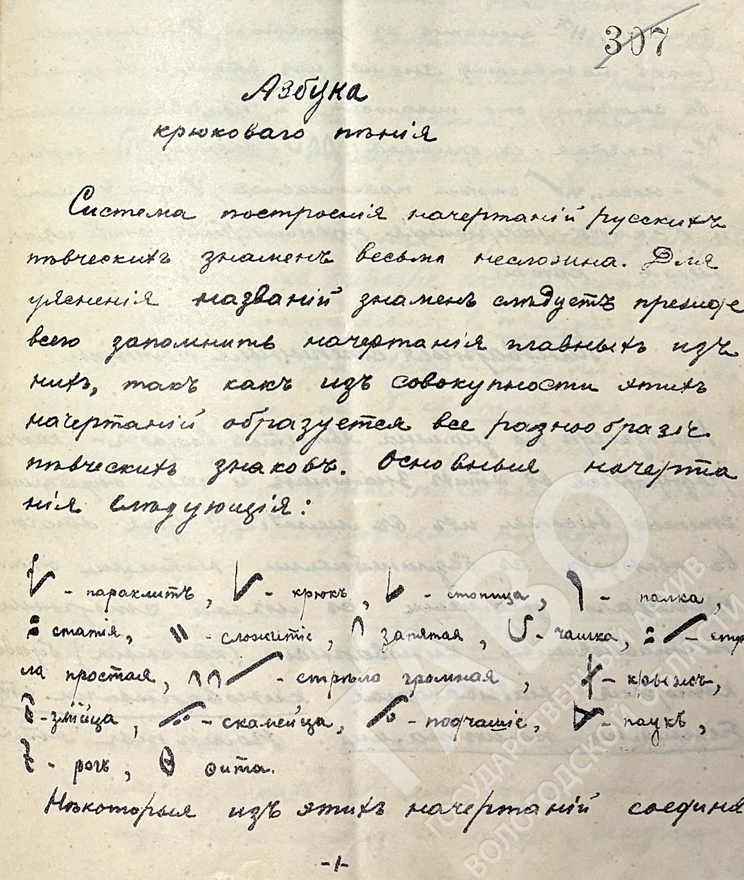 307
Азбука
крюковаго пѣнія
Система построенія начертаній русскихъ
пѣвческихъ знаменъ весьма несложна. Для
уясненія названій знаменъ слѣдуетъ прежде
всего запомнить начертанія главныхъ изъ
нихъ, такъ какъ изъ совокупности этихъ
начертаній образуется все разнообразіе
пѣвческихъ знаковъ. Основныя начерта
нія слѣдующія:
- параклитъ, - крюкъ, - стопица, - палка,
статія, - сложитіе, запятая, - чашка, - стрѣ
ла простая, - стрѣла громная, - крыжъ,
- змійца, - скамейца, - подчашіе, - паукъ,
- рогъ, Ѳ ѳита.
Нѣкоторыя изъ этихъ начертаній соединя
-1-
ГАВО
ГОСУДАРСТВЕННЫЙ АРХИВ
ВОЛОГОДСКОЙ ОБЛАСТИ